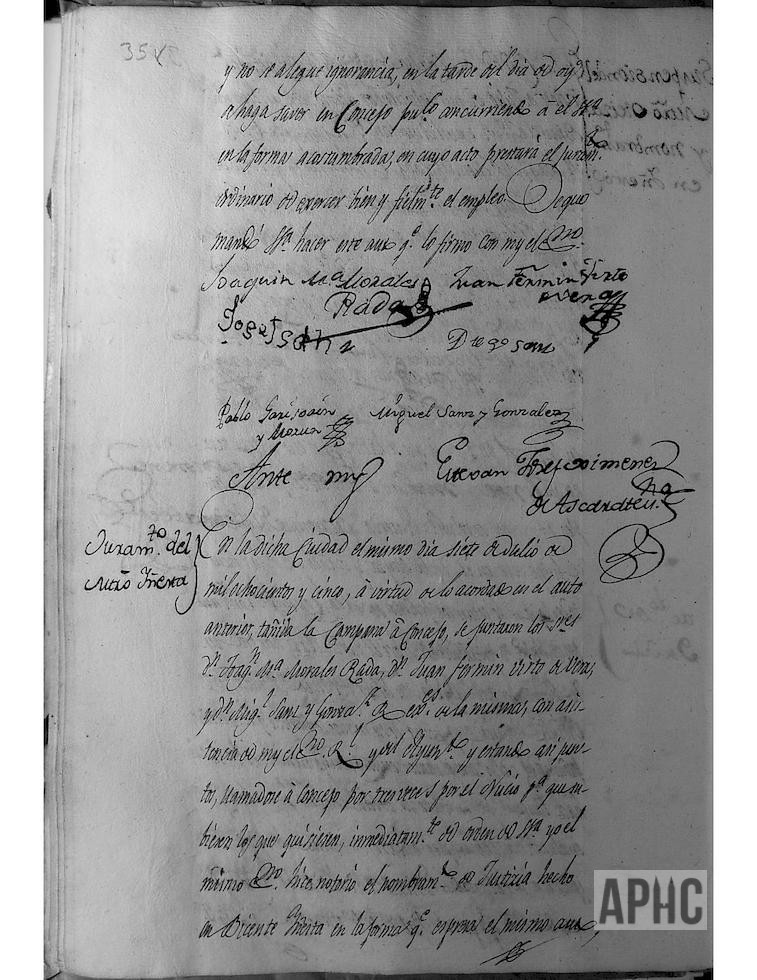 354
y no se alegue ignorancia; en la tarde del dia de oy,
se haga saver en Concejo pu.co concurriendo à él S.Sa
en la forma acostumbrada, en cuyo acto prestará el juram.to
ordinario de exercer bien y fielm.te el empleo. De que
mandó S.Sa hacer este auto q.e lo firmó con my el Ess.no
Joaquin M.a Morales
Rada
Juan Fermin Virto
de Vera
Josef Sanz
Diego Sanz
Pablo Garisoain
y Morua
Miguel Sanz y Gonzalez
Ante my
Estevan Ximenez
de Ascarate
Juram.to del
Ministro Yñesta
En la dicha Ciudad el mismo dia siete de Julio de
mil ochocientos y cinco, à virtud de lo acordado en el auto
anterior, tañida la Campana à Concejo, se juntaron los S.res
D.n Joaq.n M.a Morales Rada, D.n Juan Fermin Virto de Vera,
y D.n Mig.l Sanz y Gonza.z Rexes. de la misma, con asis-
tencia de my el Ess.no R.l y del Ayun.to y estando asi jun-
tos, llamadose à Concejo por tres veces por el Nucio p.a que su-
biesen los que quisiesen, inmediatam.te de orden de S.Sa yo el
mismo Ess.no hice notorio el nombram.to de Justicia hecho
en Vicente Yñesta en la forma q.e expresa el mismo auto,
APHC